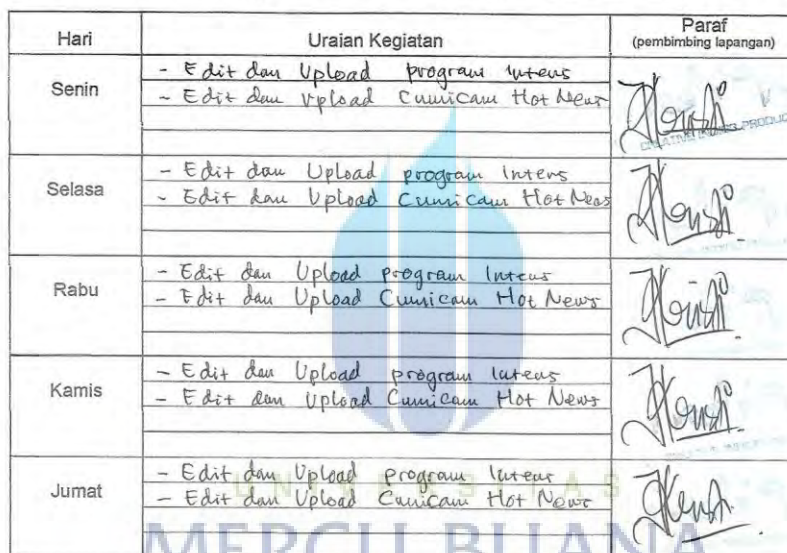 Hari Uraian Kegiatan Paraf
(pembimbing lapangan)
Senin
- Edit dan Upload program intens
- Edit dan Upload Cumicam Hot News
Selasa
- Edit dan Upload program Intens
- Edit dan Upload Cumicam Hot News
Rabu
- Edit dan Upload program Intens
- Edit dan Upload Cumicam Hot News
Kamis
- Edit dan Upload program Intens
- Edit dan Upload Cumicam Hot News
Jumat
- Edit dan Upload program Intens
- Edit dan Upload Cumicam Hot News
UNIVERSITAS
MERCU BUANA